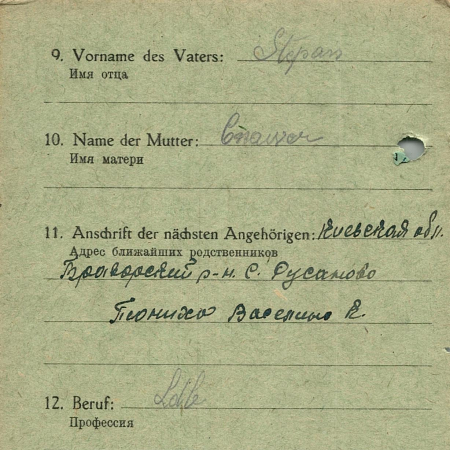 9. Vorname des Vaters: Stepan
Имя отца
10. Name der Mutter:
Имя матери
11. Anschrift der nächsten Angehörigen: Киевская обл.
Адрес ближайших родственников
р-н. с. Русаново
12. Beruf:
Профессия